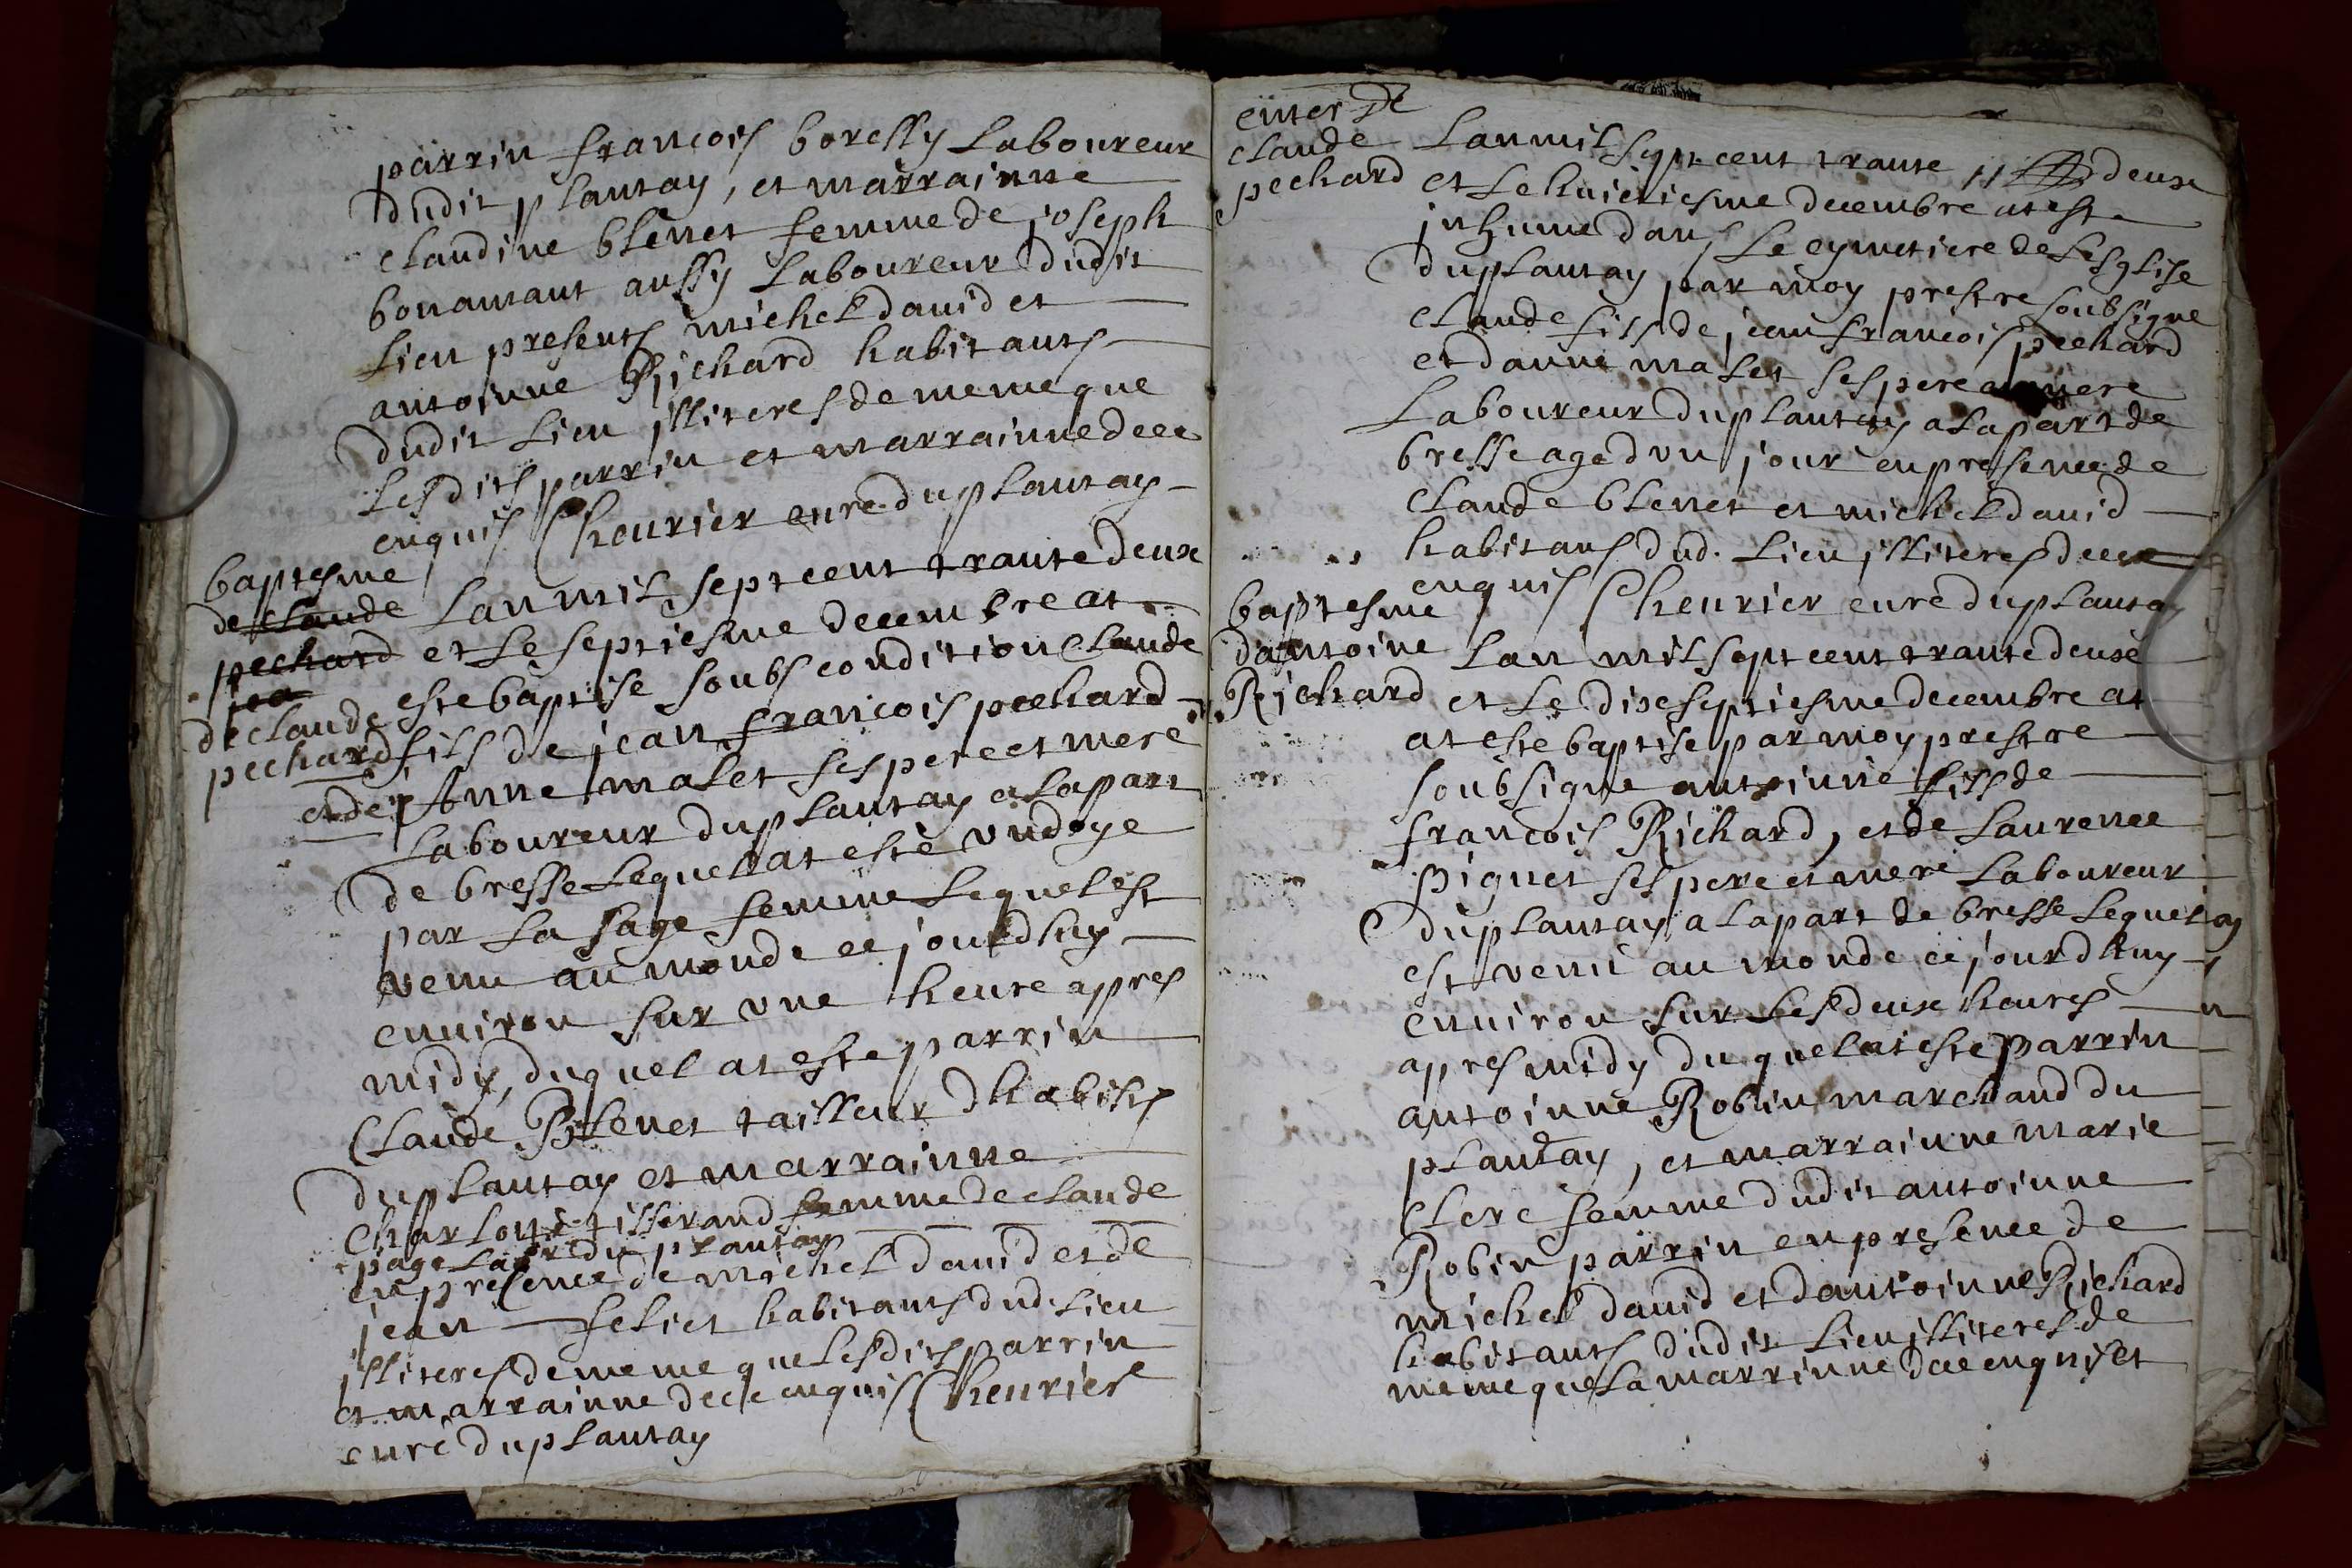 parrin francois borelly Laboureur
dudit plantay, et marrainne
claudine blenet femme de joseph
bonamant aussy Laboureur dudit
Lieu presents michel david et
antoinne Richard habitants
dudit Lieu jlliteres de meme que
Lesdits parrin et marrainne dece
enquis Cheurier curé du plantay
baptesme
de claude Lan mil sept cent trante deux
pechard et Le septiesme decembre at
de claude este baptise soubs condition Claude
pechard fils de jean francois pechard
et de Anne malet ses pere et mere
Laboureur du plantay a La part
de bresse Lequel at esté undoye
par La sage femme Lequel est
venu au monde ce jourdhuy
enuiron sur une heure apres
midy, duquel at este parrin
Claude Blenet tailleur dhabits
du plantay et marrainne
Charlotte tisserand femme de claude
page du plantay
en presence de michel david et de
jean feliet habitants dud. Lieu
jlliteres de meme que Lesdits parrin
et marrainne dece enquis Cheurier
curé du plantay
enter de
claude Lan mil sept cent trante deux
pechard et Le huictiesme decembre at este
jnhumé dans Le cymetiere de Lesglise
du plantay par moy prestre soubsigne
claude fils de jean francois pechard
et danne malet ses pere et mere
Laboureur du plantay a La part de
bresse age dun jour en presence de
claude blenet et michel david
habitans dud. Lieu jlliteres dece
enquis Cheurier curé du plantay
baptesme
dantoine Lan mil sept cent trante deux
Richard et Le dixseptiesme decembre at
at esté baptise par moy prestre
soubsigne antoinne fils de
francois Richard, et de Laurence
piguet ses pere et mere Laboureur
du plantay a La part de bresse Lequel
est venu au monde ce jourdhuy
enuiron sur Les deux heures
apres midy du quel at esté parrin
antoinne Robin marchand du
plantay, et marrainne marie
Clere femme dudit antoinne
Robin parrin en presence de
michel david et dantoinne Richard
habitants dudit Lieu jlliteres de
meme que La marrinne dece enquis et